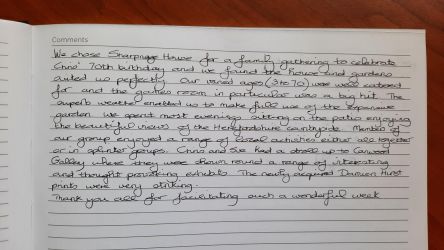 Comments
We chose Sharpnage House for a family gathering to celebrate
Chris' 70th birthday and we found the house and gardens
suited us perfectly. Our varied ages (3 to 70) were well catered
for and the games room in particular was a big hit. The
superb weather enabled us to make full use of the expansive
garden. We spent most evenings sitting on the patio enjoying
the beautiful views of the Herefordshire countryside. Members of
our group enjoyed a range of local activities either all together
or in splinter groups. Chris and Sue had a dress up to
Gallery where they were shown round a range of interesting
and thought provoking exhibits. The newly acquired Damien Hirst
prints were very striking.
Thank you all for facilitating such a wonderful week